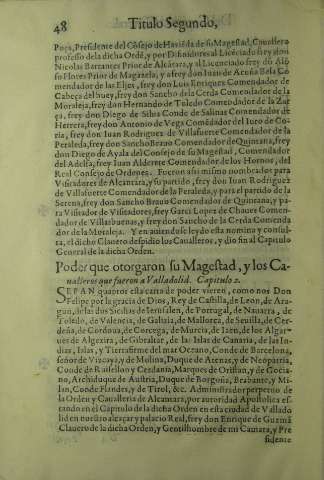 48 Titulo Segundo,
Poça, Presidente del Cõsejo de Haziẽda de su Magestad, Cauallero
professo de la dicha Ordẽ, y por Difinidores al Licẽciado frey don
Nicolas Barrantes Prior de Alcátara, y al Licenciado frey dõ Alõ
so Flores Prior de Magazela, y a frey don Iuan de Acuña Bela Co
mendador de las Eljes, frey don Luis Enriquez Comendador de
Cabeça del buey, frey don Sancho de la Cerda Comendador de la
Moraleja, frey don Hernando de Toledo Comendador de la
frey don Diego de Silua Conde de Salinas Comendador de
Herrera, frey don Antonio de Vega Comédador del luro de Co-
ria, frey don Iuan Rodriguez de Villafuerte Comendador de la
Peraleda, frey don Sancho Brauo Comendador de Quintana, frey
don Diego de Ayala del Consejo de su Magestad, Comendador
del Adelfa, frey Iuan Alderete Comendador de los Hornos, del
Real Consejo de Ordenes. Fueron assi mismo nombrados para
Visitadores de Alcantara, y su partido, frey don Iuan Rodriguez
de Villafuerte Comendador de la Peraleda, y para el partido de la
Serena, frey don Sancho Brauo Comendador de Quintana, y pa-
ra Visitador de Visitadores, frey Garci Lopez de Chaues Comen-
dador de Villasbuenas, y frey don Sancho de la Cerda Comenda
dor de la Moraleja. Y en auiendose leydo esta nomina y consul-
ta, el dicho Clauero despidio los Caualleros, y dio fin al Capitulo
General de la dicha Orden.
Poder que otorgaron su Magestad, y los Ca-
ualleros que fueron a Valladolid. Capitulo 2.
SEPAN quantos esta carta de poder vieren, como nos Don
Felipe por la gracia de Dios, Rey de Castilla, de Leon, de Ara-
gon, de las dos Sicilias de Ierusalen, de Portugal, de Nauarra, de
Toledo, de Valencia, de Galizia, de Mallorca, de Seuilla, de Cer-
deña, de Cordoua, de Corcega, de Murcia, de Iaen, de los Algar-
ues de Algezira, de Gibraltar, de las Islas de Canaria, de las In-
dias, Islas, y Tierra firme del mar Oceano, Conde de Barcelona,
señor de Vizcaya, y de Molina, Duque de Atenas, y de Neopatria,
Conde de Ruisellon y Cerdania, Marques de Oristan, y de Gocia-
no, Archiduque de Austria, Duque de Borgoña, Brabante, y Mi-
lan, Conde Flandes, y de Tirol, &c. Administrador perpetuo de
la Orden y Caualleria de Alcantara, por autoridad Apostolica es-
tando en el Capitulo de la dicha Orden en esta ciudad de Vallado
lid en nuestro alcaçar y palacio Real, frey don Enrique de Guzmã
Clauero de la dicha Orden, y Gentilhombre de mi Camara, y Pre
sidente